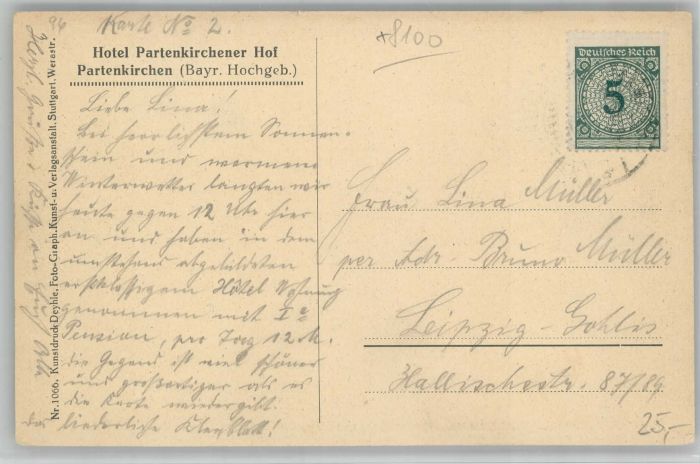 Karte No 2.
Hotel Partenkirchener Hof
Partenkirchen (Bayr. Hochgeb.)
Liebe Lina!
Bei herrlichstem Sonnen-
schein und warmem
Winterwetter langten wir
heute gegen 12 Uhr hier
an und haben in dem
umstehend abgebildeten
erstklassigem Hôtel Wohnung
genommen mit Ia
Pension, pro Tag 12 M.
die Gegend ist viel schöner
und großartiger als es
die Karte wiedergibt.
das liederliche Kleeblatt!
Herzl. Grüße u. Küsse an
Nr. 1066. Kunstdruck Deyhle, Foto-Graph. Kunst- u. Verlagsanstalt, Stuttgart, Werastr. 94
+8100
Deutsches Reich
5
Frau Lina Müller
per Adr. Bruno Müller
Leipzig-Gohlis
Hallischestr. 87/89
25,-